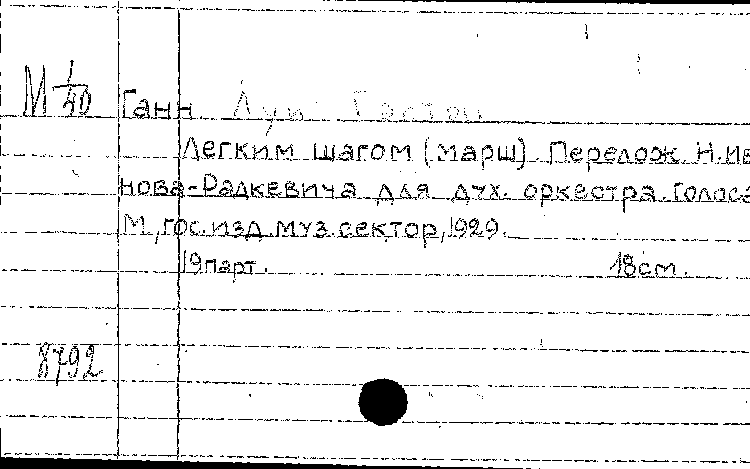 М 1/40 Ганн Луи Гастон
Легким шагом (марш) Перелож. Н. Ива
нова-Радкевича для дух. оркестра. Голоса
М., гос. изд. муз. сектор, 1929.
19 парт. 18 см.
8792